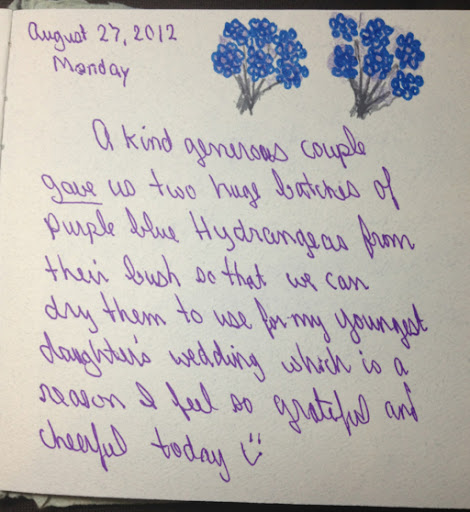 August 27, 2012
Monday
A kind generous couple
gave us two huge batches of
purple blue Hydrangeas from
their bush so that we can
dry them to use for my youngest
daughter's wedding which is a
reason I feel so grateful and
cheerful today